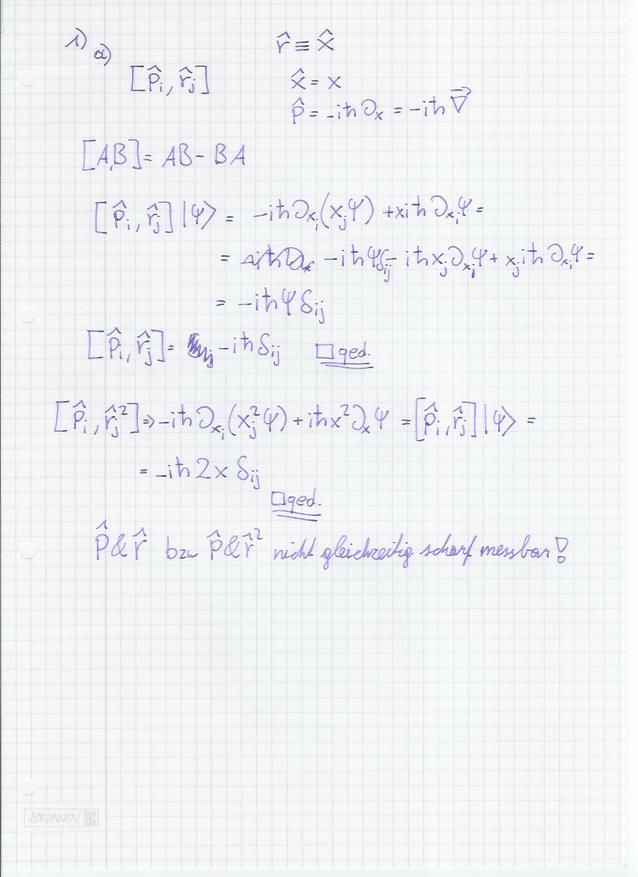 1) a) r̂ ≡ x̂
[p̂ᵢ, r̂ⱼ] x̂ = x
p̂ = -iħ∂ₓ = -iħ∇⃗
[A,B] = AB - BA
[p̂ᵢ, r̂ⱼ] |ψ⟩ = -iħ∂ₓᵢ(xⱼψ) + xiħ∂ₓᵢψ =
= -iħψδᵢⱼ - iħxⱼ∂ₓᵢψ + xⱼiħ∂ₓᵢψ =
= -iħψδᵢⱼ
[p̂ᵢ, r̂ⱼ] = -iħδᵢⱼ □ qed.
[p̂ᵢ, r̂ⱼ²] ⇒ -iħ∂ₓᵢ(xⱼ²ψ) + iħx²∂ₓψ = [p̂ᵢ, r̂ⱼ] |ψ⟩ =
= -iħ2x δᵢⱼ
□ qed.
p̂ & r̂ bzw p̂ & r̂² nicht gleichzeitig scharf messbar!
BRUNNEN